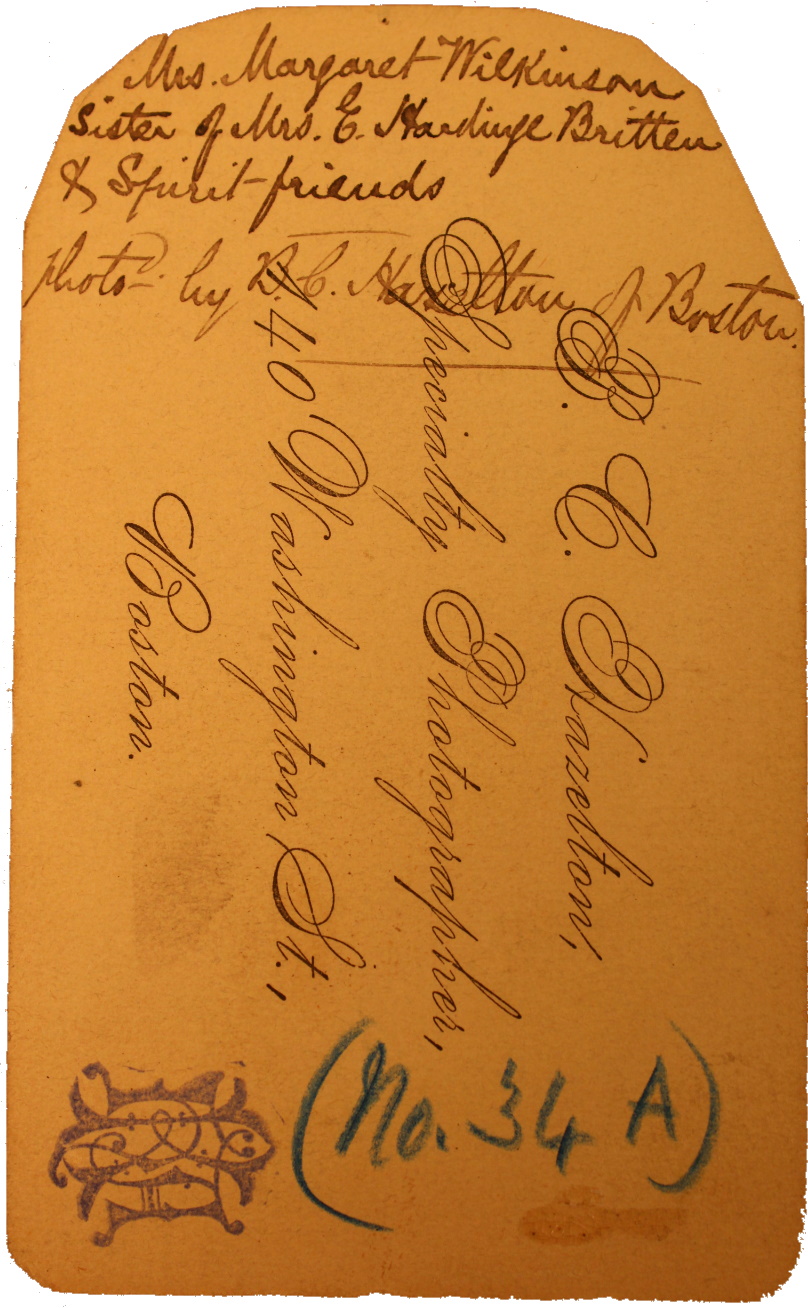 Mrs. Margaret Wilkinson
Sister of Mrs. E. Hardinge Britten
& Spirit friends
photo'd by B. C. Hazelton of Boston.
B. C. Hazelton,
Specialty Photographer,
140 Washington St.,
Boston.
(No. 34 A)